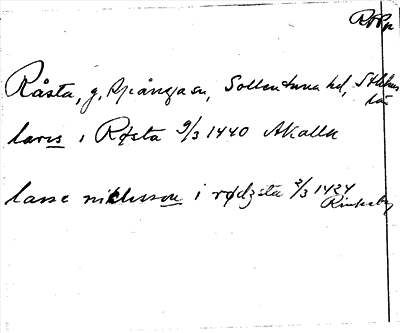 Råsta, g. Spånga sn, Sollentuna hd, Sthlms
län
laris i Røsta 9/3 1440 Akalla
lasse niclisson i rødzsta 3/3 1424
Rinkeby